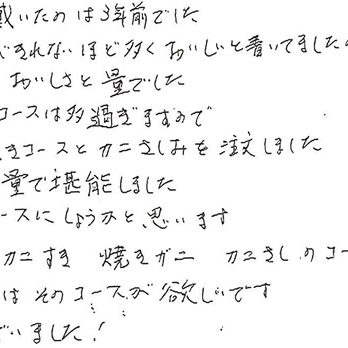 戴いたのは3年前でした
きれないほど多くおいしいと書いてました
おいしさと量でした
コースは多過ぎますので
きコースとカニさしみを注文しました
量で堪能しました
ースにしようかと思います
カニすき 焼きガニ カニさしのコー
はそのコースが欲しいです
いました!